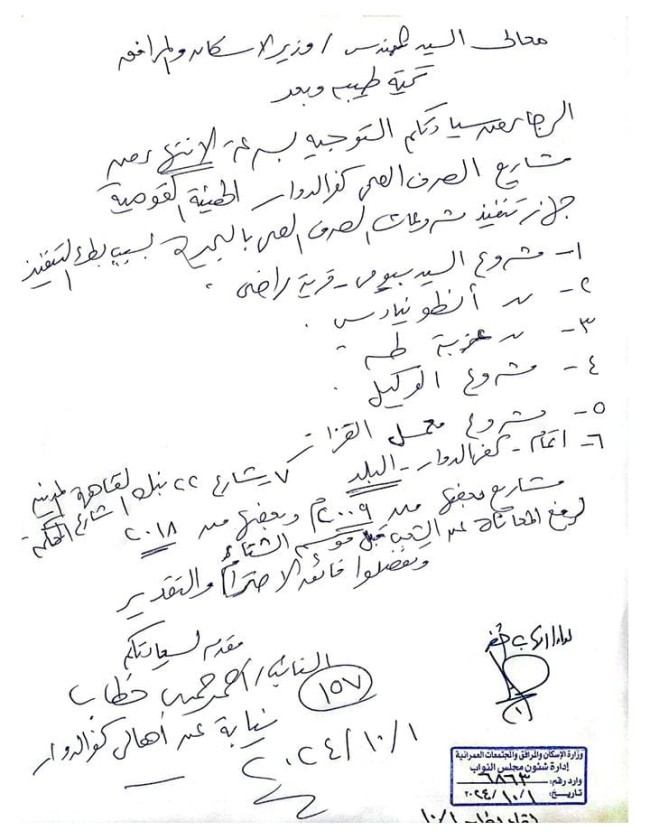 معالى السيد المهندس / وزير الاسكان والمرافق
تحية طيبه وبعد
الرجاء من سيادتكم التوجيه بسرعة الانتهاء من
مشاريع الصرف الصحى كفر الدوار الهيئة القومية
جهاز تنفيذ مشروعات الصرف الصحى بالبحيرة بسبب بطء التنفيذ
١- مشروع السيد بيومى - قرية راضى .
٢- " أنطونيادس .
٣- " عزبة طه .
٤- مشروع الوكيل .
٥- مشروع معمل القزاز
٦- اتمام - كفر الدوار - البلد ٧ شارع ٢٢ بنك القاهرة
مشاريع بعضها من ٢٠٠٩ م وبعضها من ٢٠١٨
لرفع المعاناة عن الشعب قبل موسم الشتاء
وتفضلوا فائق الاحترام والتقدير
مقدم لسيادتكم
النائب / أحمد حطاب
١٥٧
نيابة عن أهالى كفر الدوار
٢٠٢٤/١٠/١
وزارة الإسكان والمرافق والمجتمعات العمرانية
إدارة شئون مجلس النواب
وارد رقم: ٦٨٦٣
تاريخ: ٢٠٢٤/١٠/١
١٠/١